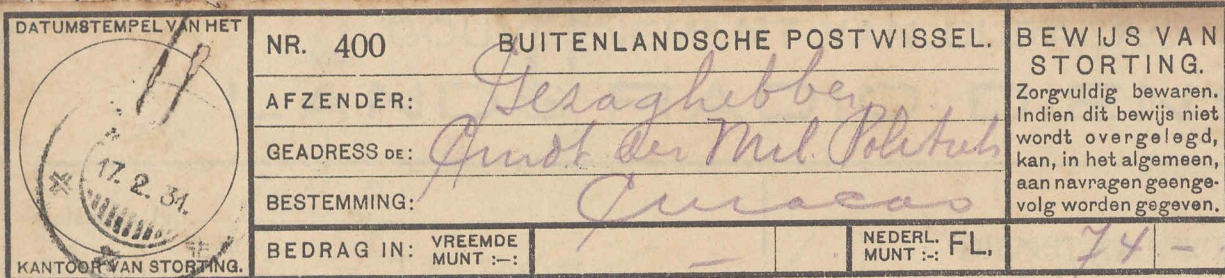 DATUMSTEMPEL VAN HET
17.2.31.
KANTOOR VAN STORTING.
NR. 400 BUITENLANDSCHE POSTWISSEL.
AFZENDER: Gezaghebber
GEADRESSDE: Cmdt der Mil. Politie
BESTEMMING: Curacao
BEDRAG IN: VREEMDE MUNT :-: — NEDERL. MUNT :-: FL. 74 -
BEWIJS VAN
STORTING.
Zorgvuldig bewaren.
Indien dit bewijs niet
wordt overgelegd,
kan, in het algemeen,
aan navragen geenge-
volg worden gegeven.